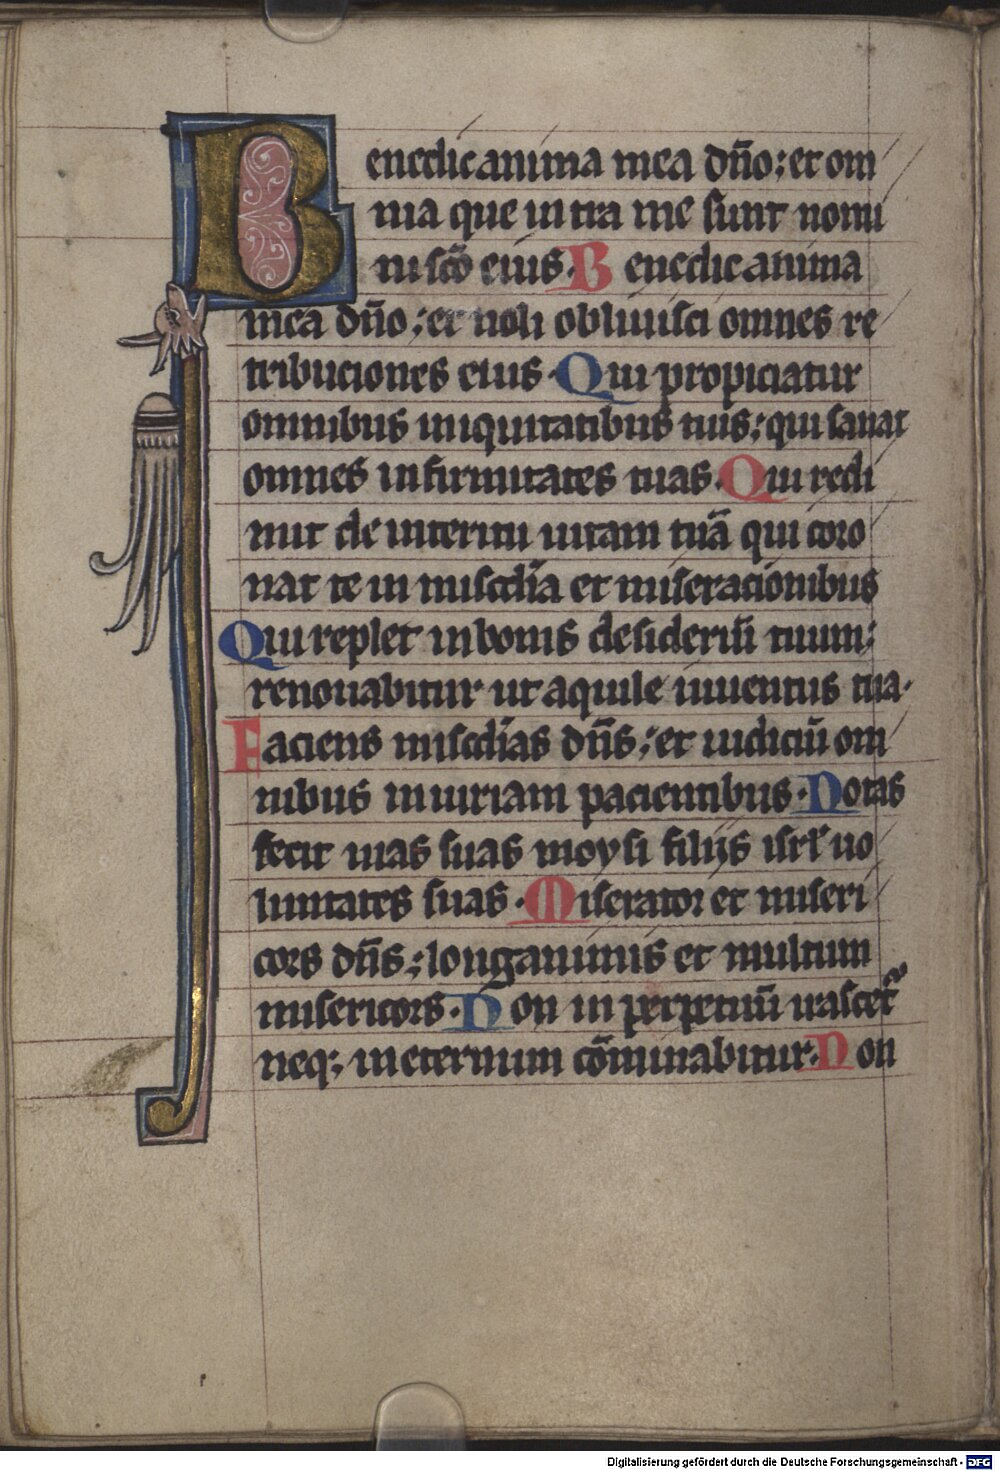 Benedic anima mea dño; et om
nia que intra me sunt nomi
ni scõ eius. Benedic anima
mea dño; et noli obliuisci omnes re
tribuciones eius. Qui propiciatur
omnibus iniquitatibus tuis; qui sanat
omnes infirmitates tuas. Qui redi
mit de interitu uitam tuã qui coro
nat te in miscdĩa et miseracionibus
Qui replet in bonis desideriũ tuum;
renouabitur ut aquile iuuentus tua.
Faciens miscdĩas dñs; et iudiciũ om
nibus iniuriam pacientibus. Notas
fecit uias suas moysi filijs isrl' uo
luntates suas. Miserator et miseri
cors dñs; longanimis et multum
misericors. Non in perpetuũ irascet᷑
neq; in eternum cõminabitur. Non
Digitalisierung gefördert durch die Deutsche Forschungsgemeinschaft - DFG